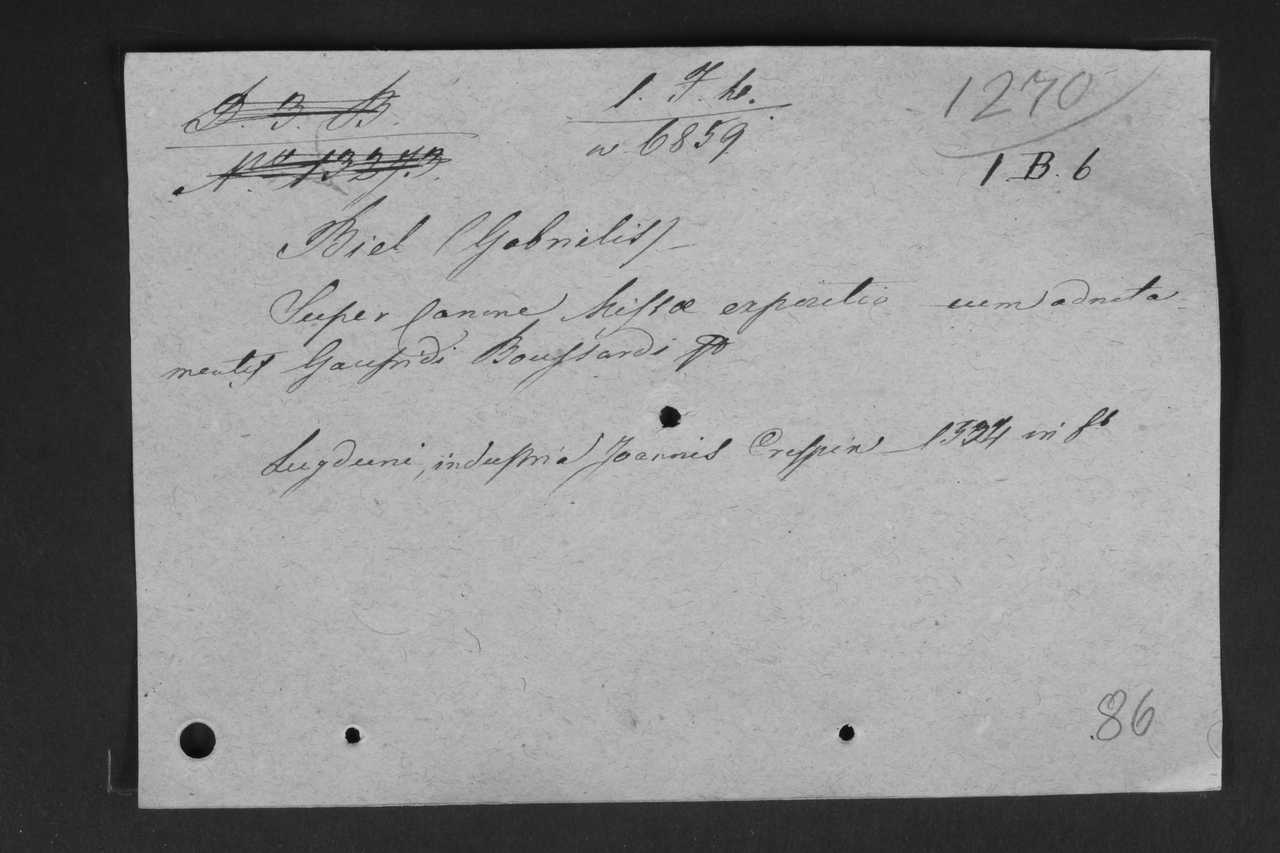 D. 3. B.
Nº 13273.
1. F. h.
n 6859
1270
1. B. 6
Biel (Gabrielis)
Super Canone Missæ expositio cum adnota
mentis Gaufridi Boussardi
Lugduni, industria Joannis Crespin 1524 in 8º
86